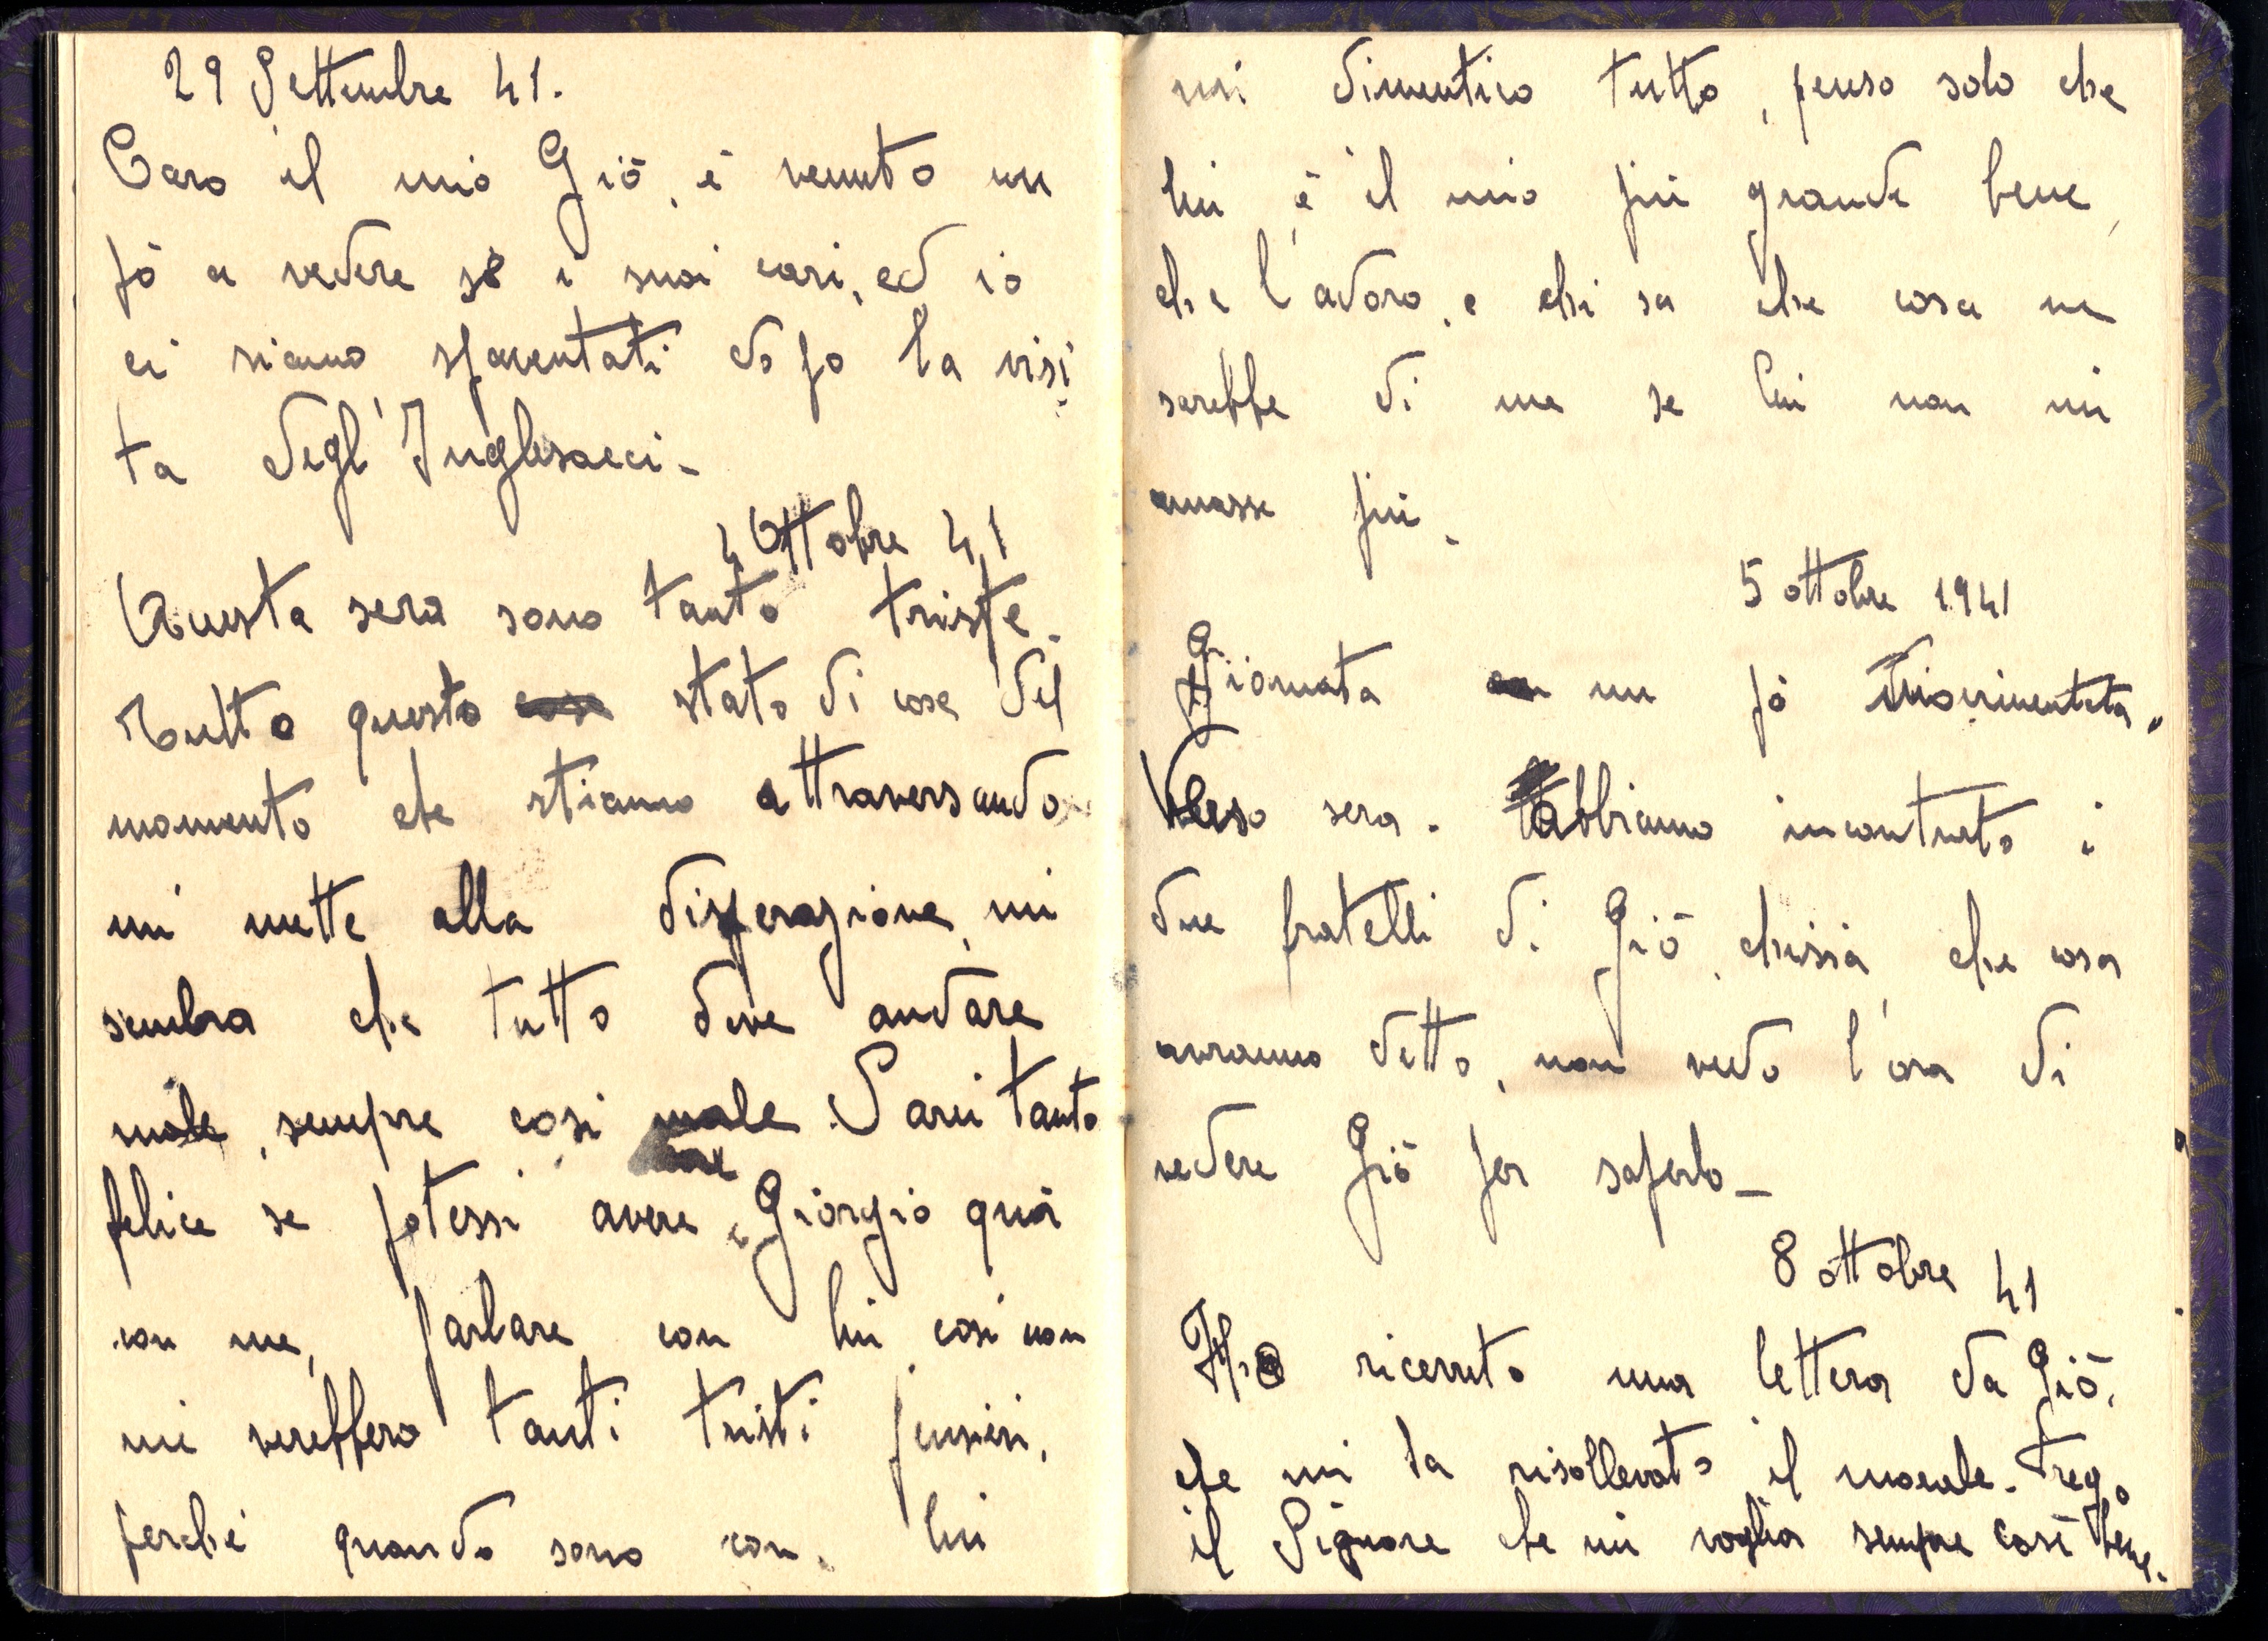 29 Settembre 41.
Caro il mio Giò, è venuto un
pò a vedere se i suoi cari, ed io
ci siamo spaventati dopo la visi
ta degl'Inglesacci-
4 Ottobre 41
Questa sera sono tanto triste.
Tutto questo stato di cose del
momento che stiamo attraversando
mi mette alla disperazione, mi
sembra che tutto deve andare
male, sempre così male. Sarei tanto
felice se potessi avere Giorgio quà
con me, parlare con lui così non
mi verebbero tanti tristi pensieri,
perché quando sono con lui
mi dimentico tutto, penso solo che
lui è il mio più grande bene,
che l'adoro, e chi sa che cosa ne
sarebbe di me se lui non mi
amasse più.
5 ottobre 1941
Giornata un pò movimentata.
Verso sera. abbiamo incontrato i
due fratelli di Giò, chissà, che cosa
avranno detto, non vedo l'ora di
vedere Giò per saperlo-
8 ottobre 41
Ho ricevuto una lettera da Giò,
che mi ha risollevato il morale. Prego
il Signore che mi voglia sempre così bene.